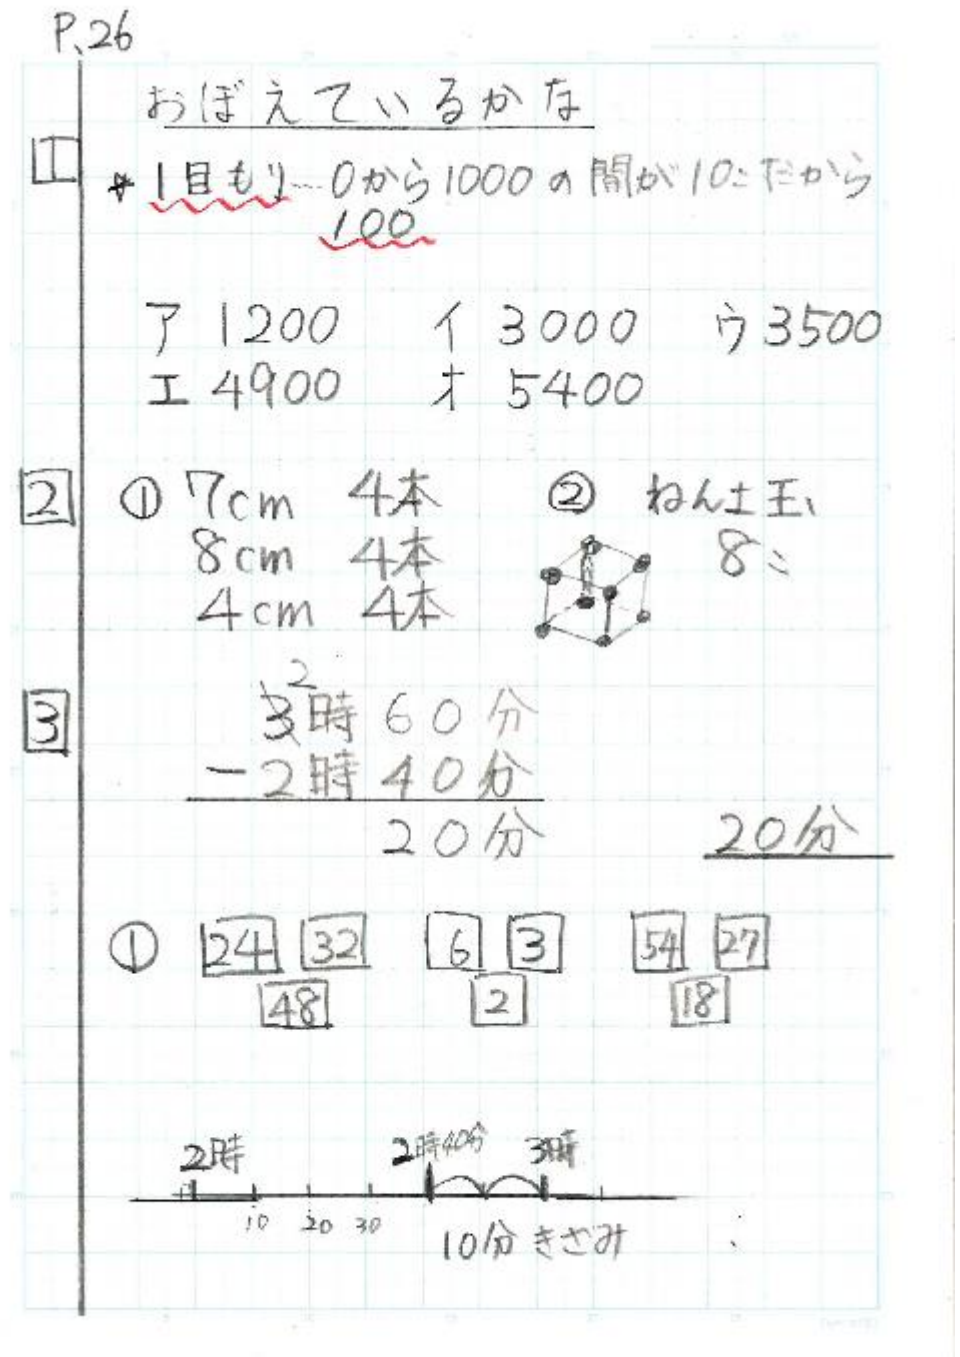 P.26
おぼえているかな
1
*1目もり…0から1000の間が10こだから
100
ア 1200 イ 3000 ウ 3500
エ 4900 オ 5400
2 ① 7cm 4本 ② ねん土玉、
8cm 4本 8こ
4cm 4本
2
3 3時60分
-2時40分
20分 20分
① 24 32 6 3 54 27
48 2 18
2時 2時40分 3時
10 20 30
10分きざみ